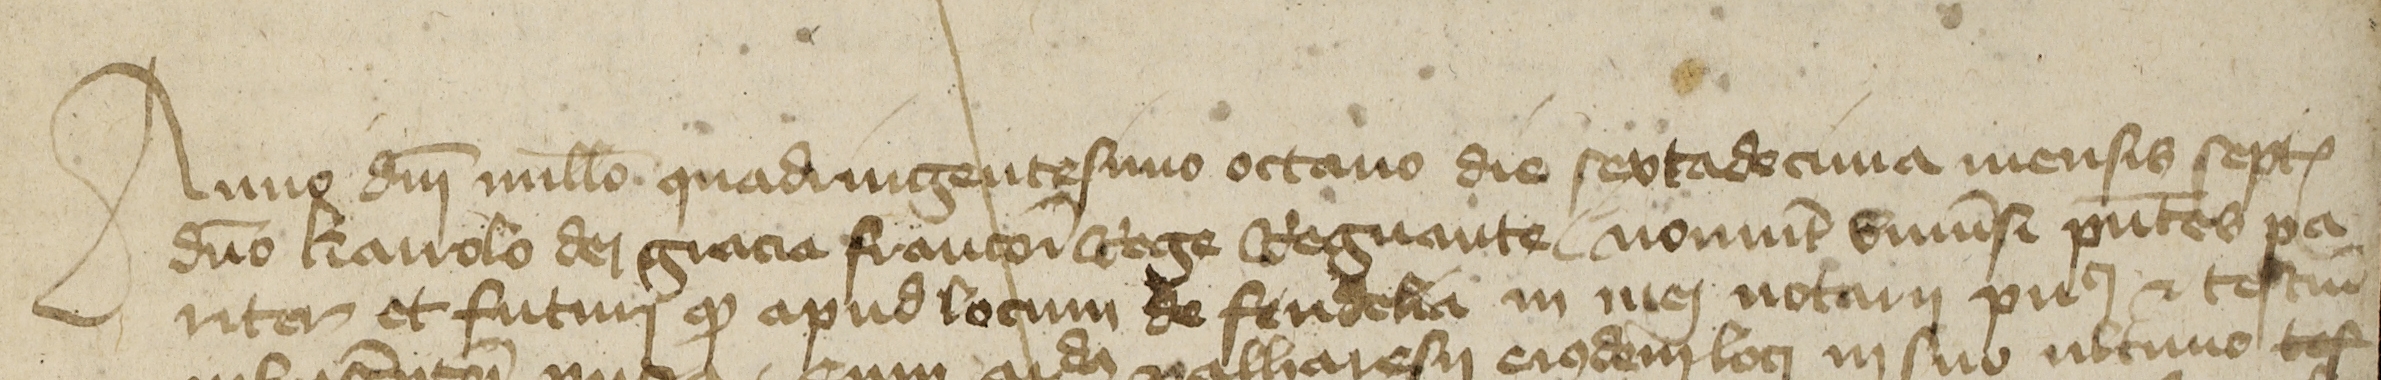 Anno dni millo quadringentesimo octavo die sextadecima mensis sept
dno karolo dei gracia francor Rege Regnante noverint universi pntes pa
riter et futuri q apud locum de fendelia in mei notarii pn & testium
cum palharesii eiusdem loci in suo ultimo tes